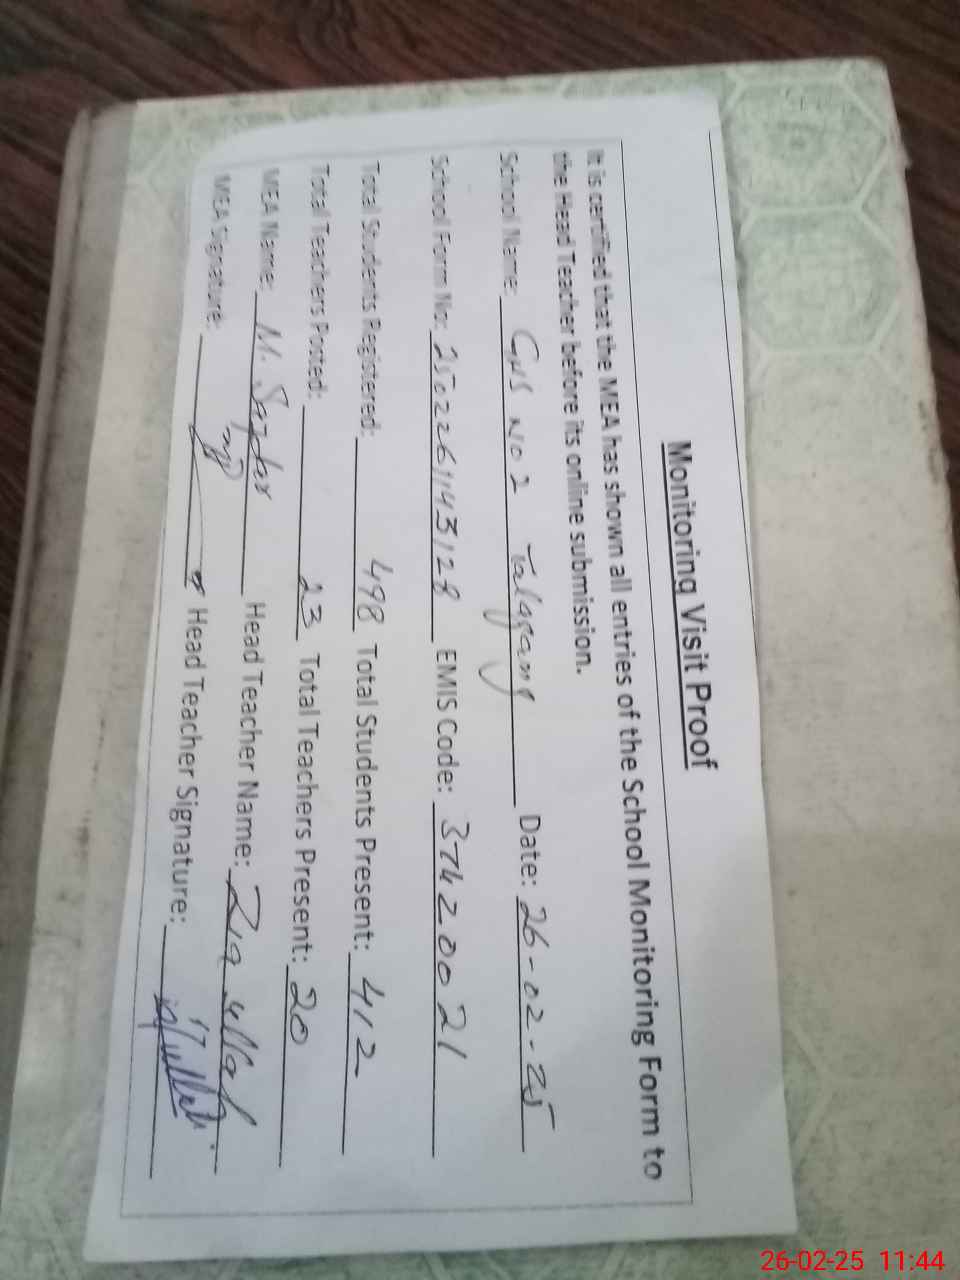 Monitoring Visit Proof
It is certified that the MEA has shown all entries of the School Monitoring Form to
the Head Teacher before its online submission.
School Name: GHS No 2 Talagang Date: 26-02-25
School Form No: 2502261143128 EMIS Code: 37420021
Total Students Registered: 498 Total Students Present: 412
Total Teachers Posted: 23 Total Teachers Present: 20
MEA Name: M. Safdar Head Teacher Name: Zia ullah
MEA Signature: Head Teacher Signature:
26-02-25 11:44